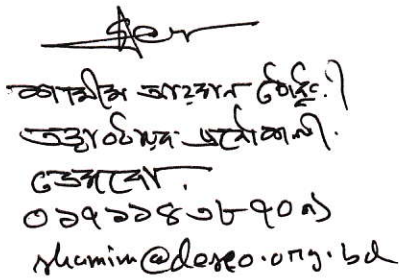 শামীম আহসান চৌধুরী
তত্ত্বাবধায়ক প্রকৌশলী.
ডেসকো.
০১৭১১৪৩৮৭০৯
shamim@desco.org.bd